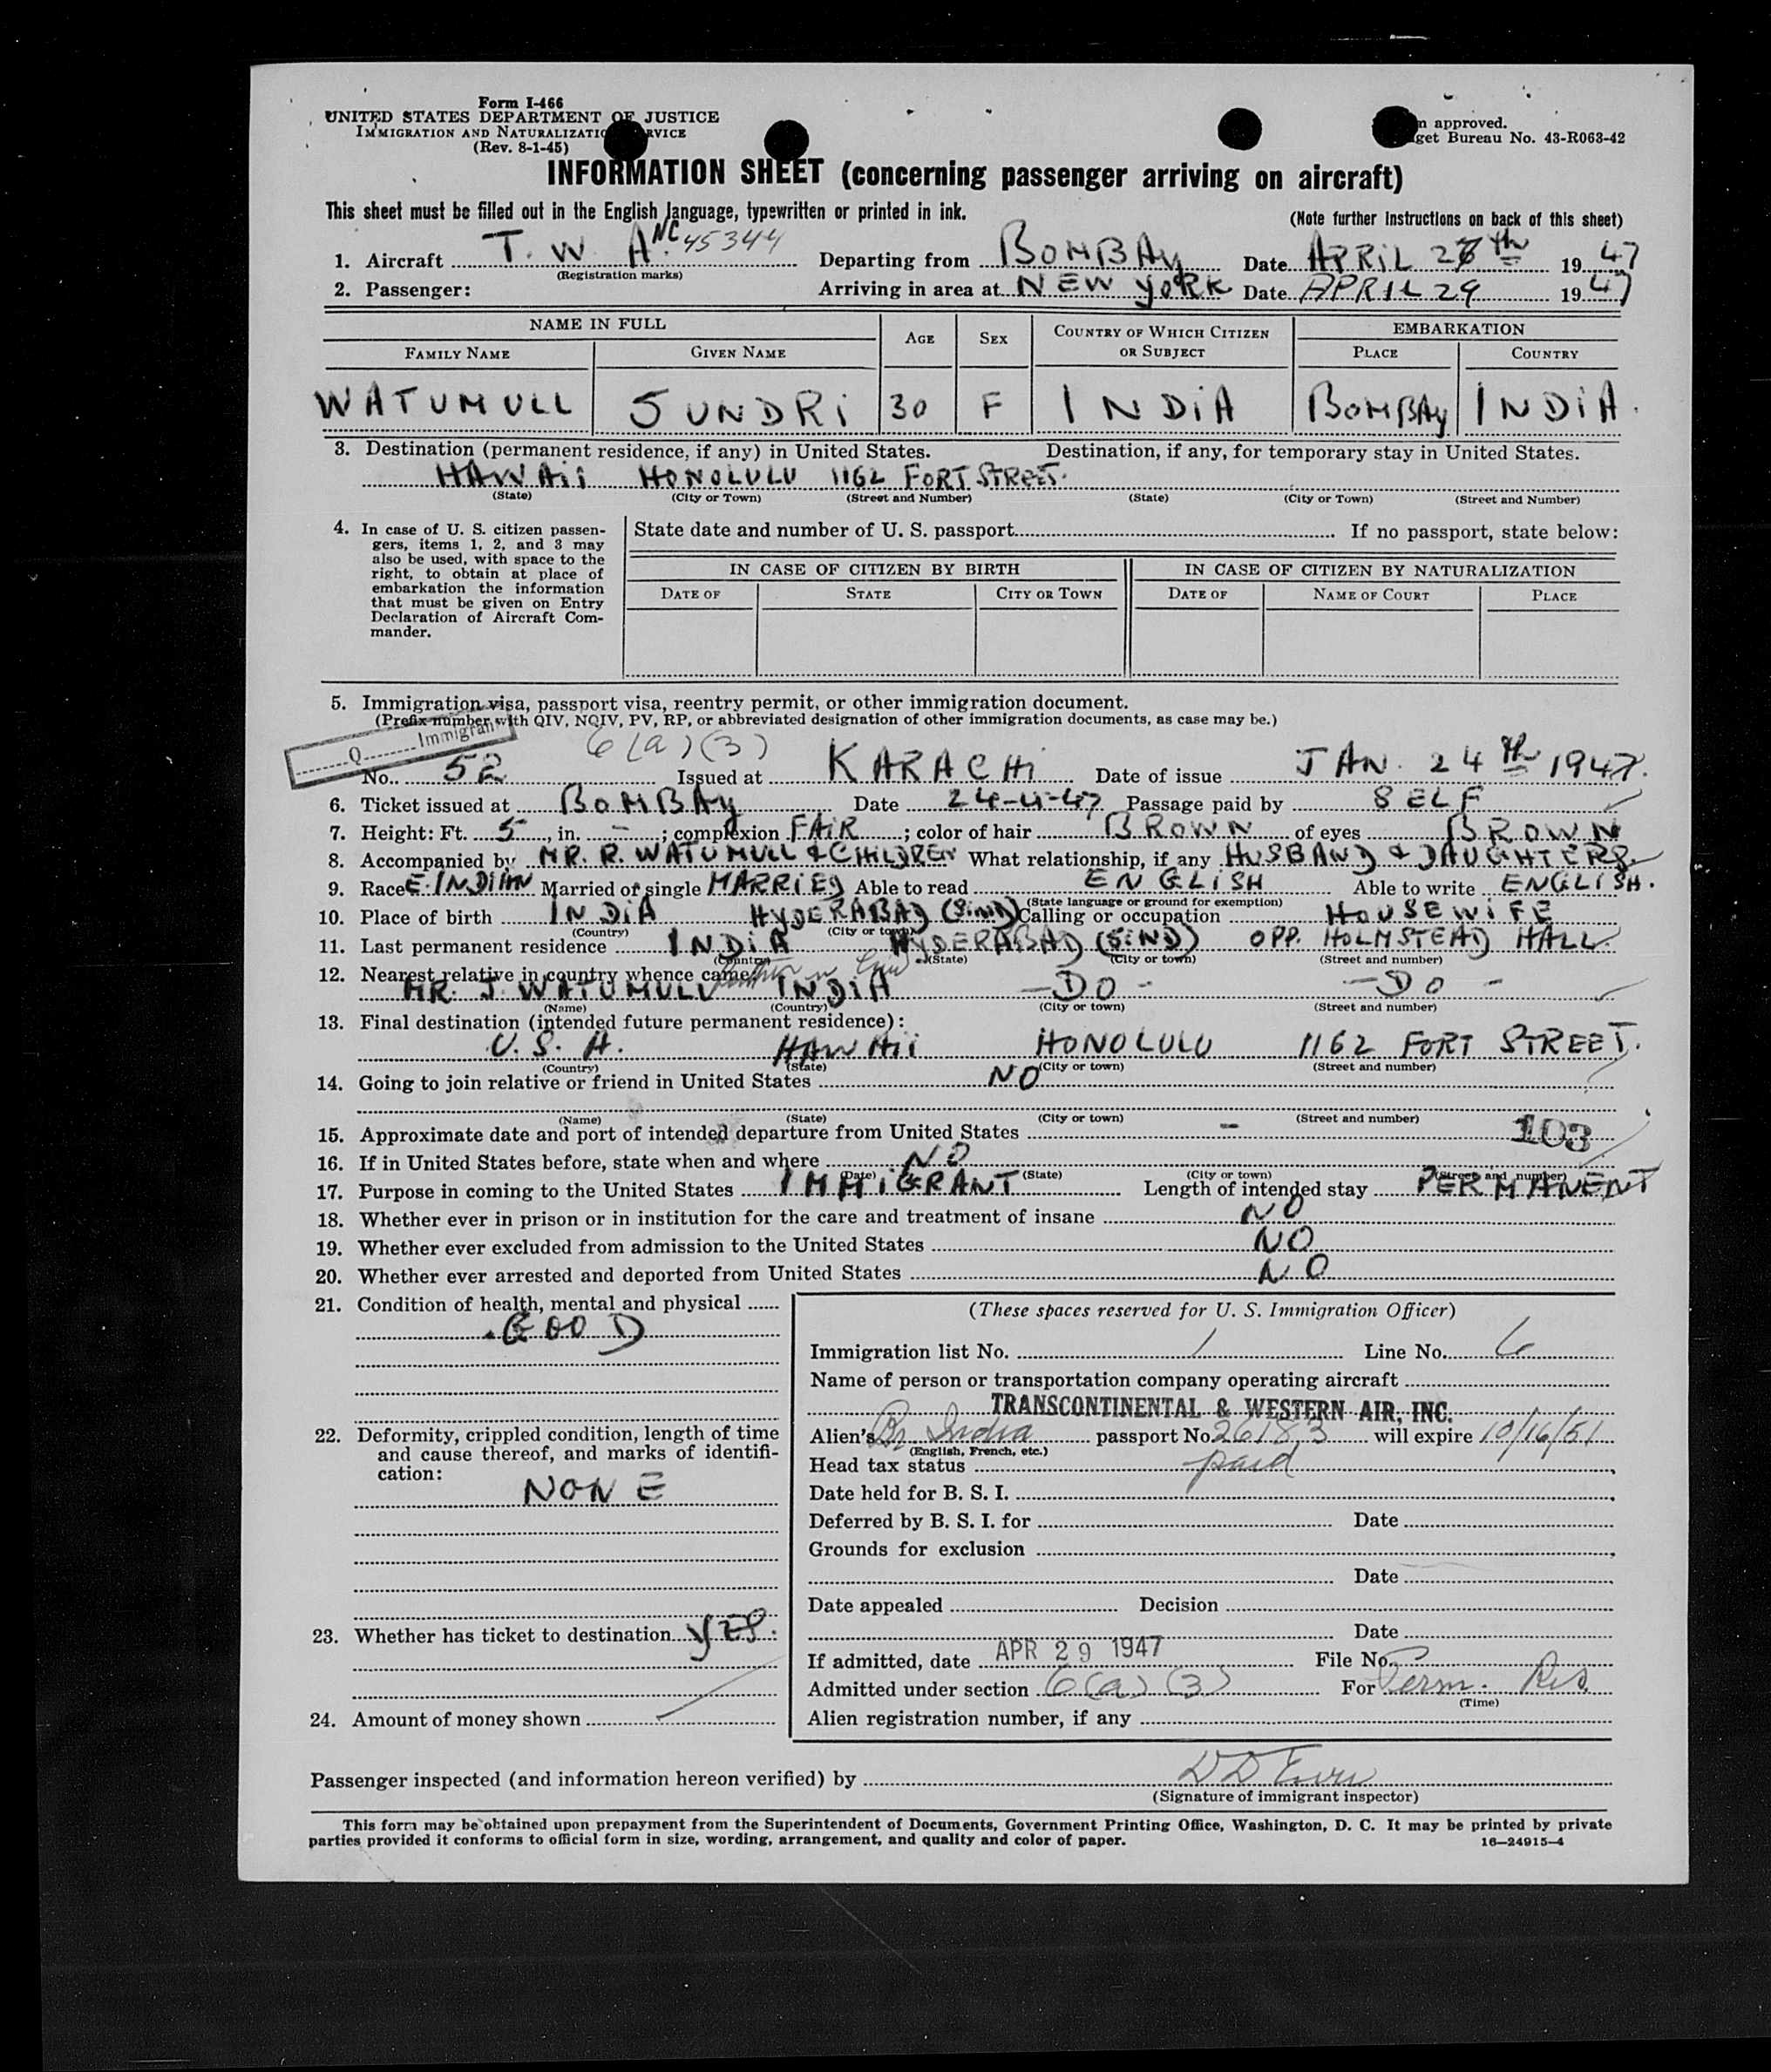 Form I-466
UNITED STATES DEPARTMENT OF JUSTICE
IMMIGRATION AND NATURALIZATION SERVICE
(Rev. 8-1-45)
approved.
get Bureau No. 43-R063-42
INFORMATION SHEET (concerning passenger arriving on aircraft)
This sheet must be filled out in the English language, typewritten or printed in ink.
(Note further instructions on back of this sheet)
1. Aircraft T. W. A. NC 45344 Departing from BOMBAY Date APRIL 28th 1947
(Registration marks)
2. Passenger: Arriving in area at NEW YORK Date APRIL 29 1947
NAME IN FULL AGE SEX COUNTRY OF WHICH CITIZEN OR SUBJECT EMBARKATION
FAMILY NAME GIVEN NAME PLACE COUNTRY
WATUMULL SUNDRI 30 F INDIA BOMBAY INDIA.
3. Destination (permanent residence, if any) in United States. Destination, if any, for temporary stay in United States.
HAWAII HONOLULU 1162 FORT STREET.
(State) (City or Town) (Street and Number) (State) (City or Town) (Street and Number)
4. In case of U. S. citizen passengers, items 1, 2, and 3 may also be used, with space to the right, to obtain at place of embarkation the information that must be given on Entry Declaration of Aircraft Commander.
State date and number of U. S. passport If no passport, state below:
IN CASE OF CITIZEN BY BIRTH IN CASE OF CITIZEN BY NATURALIZATION
DATE OF STATE CITY OR TOWN DATE OF NAME OF COURT PLACE
5. Immigration visa, passport visa, reentry permit, or other immigration document.
(Prefix number with QIV, NQIV, PV, RP, or abbreviated designation of other immigration documents, as case may be.)
Q Immigrant 6(a)(3)
No. 52 Issued at KARACHI Date of issue JAN. 24th 1947.
6. Ticket issued at BOMBAY Date 24-4-47 Passage paid by SELF
7. Height: Ft. 5, in. -; complexion FAIR; color of hair BROWN of eyes BROWN
8. Accompanied by MR. R. WATUMULL & CHILDREN What relationship, if any HUSBAND & DAUGHTERS.
9. Race E. INDIAN Married or single MARRIED Able to read ENGLISH Able to write ENGLISH.
(State language or ground for exemption)
10. Place of birth INDIA HYDERABAD (SIND) Calling or occupation HOUSEWIFE
(Country) (City or town)
11. Last permanent residence INDIA HYDERABAD (SIND) OPP. HOLMSTEAD HALL.
(Country) (State) (City or town) (Street and number)
12. Nearest relative in country whence came
MR. J. WATUMULL INDIA - DO - - DO -
(Name) (Country) (City or town) (Street and number)
13. Final destination (intended future permanent residence):
U. S. A. HAWAII HONOLULU 1162 FORT STREET.
(Country) (State) (City or town) (Street and number)
14. Going to join relative or friend in United States NO
(Name) (State) (City or town) (Street and number)
15. Approximate date and port of intended departure from United States - 103
16. If in United States before, state when and where NO
(Date) (State) (City or town) (Street and number)
17. Purpose in coming to the United States IMMIGRANT Length of intended stay PERMANENT
18. Whether ever in prison or in institution for the care and treatment of insane NO
19. Whether ever excluded from admission to the United States NO
20. Whether ever arrested and deported from United States NO
21. Condition of health, mental and physical
GOOD
22. Deformity, crippled condition, length of time and cause thereof, and marks of identification:
NONE
23. Whether has ticket to destination YES.
24. Amount of money shown
(These spaces reserved for U. S. Immigration Officer)
Immigration list No. 1 Line No. 6
Name of person or transportation company operating aircraft
TRANSCONTINENTAL & WESTERN AIR, INC.
Alien's Br India passport No. 26183 will expire 10/16/51
(English, French, etc.)
Head tax status paid
Date held for B. S. I.
Deferred by B. S. I. for Date
Grounds for exclusion
Date
Date appealed Decision
Date
If admitted, date APR 29 1947 File No.
Admitted under section 6(a)(3) For Perm. Res.
(Time)
Alien registration number, if any
Passenger inspected (and information hereon verified) by
(Signature of immigrant inspector)
This form may be obtained upon prepayment from the Superintendent of Documents, Government Printing Office, Washington, D. C. It may be printed by private
parties provided it conforms to official form in size, wording, arrangement, and quality and color of paper. 16—24915-4